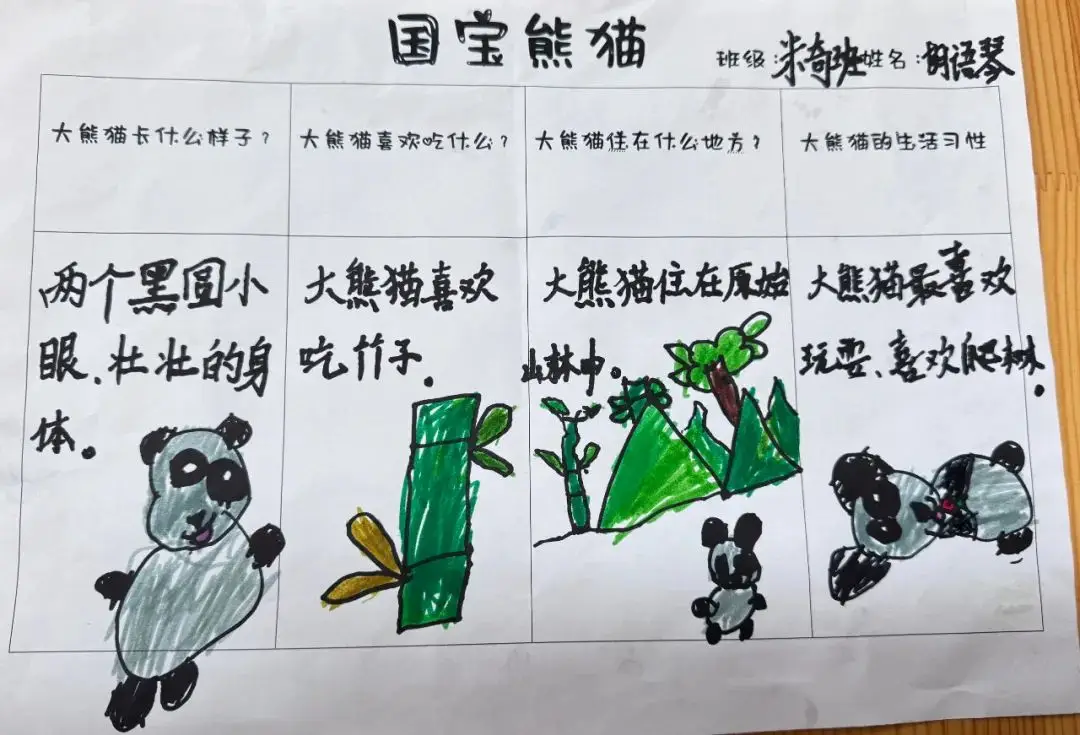 国宝熊猫
班级:米奇班姓名:胡语琴
大熊猫长什么样子?
大熊猫喜欢吃什么?
大熊猫住在什么地方?
大熊猫的生活习性
两个黑圆小
眼、壮壮的身
体。
大熊猫喜欢
吃竹子。
大熊猫住在原始
山林中。
大熊猫最喜欢
玩耍、喜欢爬树。